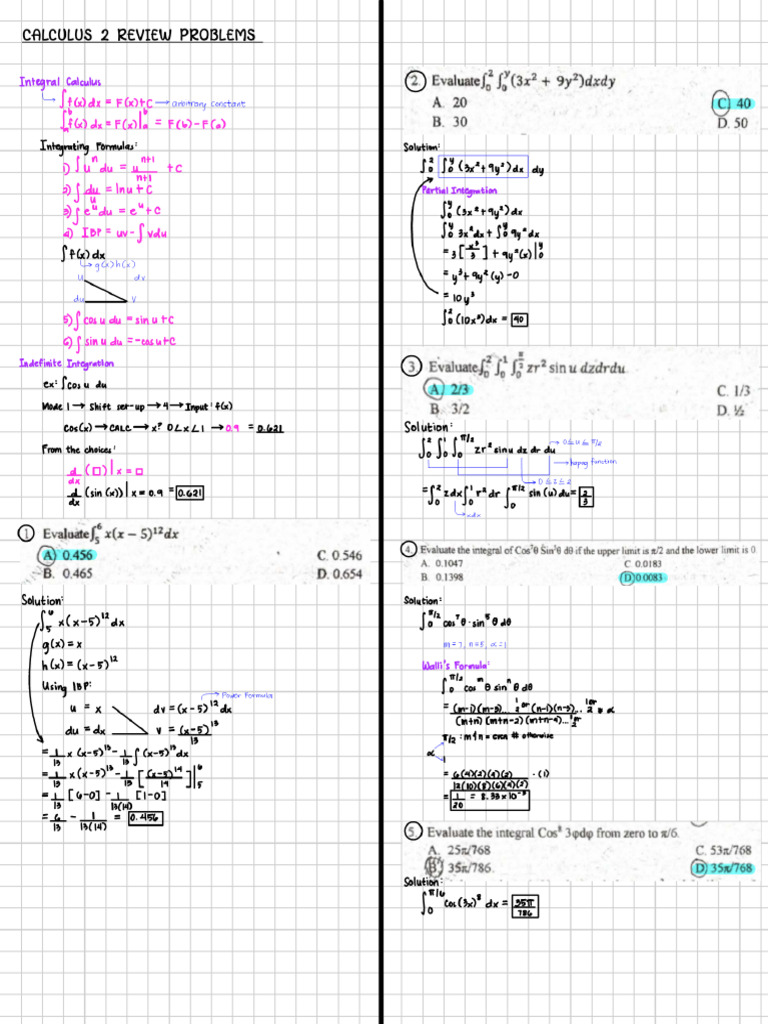 CALCULUS 2 REVIEW PROBLEMS
Integral Calculus
∫f(x)dx = F(x)+C → arbitrary constant
∫ₐᵇf(x)dx = F(x)|ₐᵇ = F(b)-F(a)
Integrating Formulas:
1) ∫uⁿ du = uⁿ⁺¹/n+1 + C
2) ∫du/u = lnu + C
3) ∫eᵘdu = eᵘ+C
4) IBP = uv-∫vdu
∫f(x)dx
g(x)h(x)
u dv
du v
5) ∫cos u du = sin u+C
6) ∫sin u du = -cos u+C
Indefinite Integration
ex: ∫cos u du
Mode 1 → Shift set-up → 4 → Input: f(x)
cos(x) → CALC → x? 0<x<1 → 0.9 = 0.621
From the choices:
d/dx (□)|x=□
d/dx (sin(x))|x=0.9 = 0.621
1. Evaluate∫₅⁶ x(x − 5)¹²dx
A) 0.456 C. 0.546
B. 0.465 D. 0.654
Solution:
∫₅⁶ x(x-5)¹²dx
g(x) = x
h(x) = (x-5)¹²
Using IBP:
Power Formula
u = x dv = (x-5)¹²dx
du = dx v = (x-5)¹³/13
= 1/13 x (x-5)¹³ - 1/13 ∫(x-5)¹³dx
= 1/13 x (x-5)¹³ - 1/13 [(x-5)¹⁴/14]|₅⁶
= 1/13 [6-0] - 1/13(14) [1-0]
= 6/13 - 1/13(14) = 0.456
2. Evaluate∫₀²∫₀ʸ(3x² + 9y²)dxdy
A. 20 C) 40
B. 30 D. 50
Solution:
∫₀² ∫₀ʸ(3x²+9y²)dx dy
Partial Integration
∫₀ʸ(3x²+9y²)dx
∫₀ʸ3x²dx+∫₀ʸ9y²dx
= 3[x³/3] + 9y²(x)|₀ʸ
= y³+9y²(y)-0
= 10y³
∫₀²(10x³)dx = 40
3. Evaluate∫₀²∫₀¹∫₀^(π/2) zr² sin u dzdrdu
A) 2/3 C. 1/3
B. 3/2 D. ½
Solution:
∫₀²∫₀¹∫₀^(π/2) zr²sinu dz dr du → 0≤u≤π/2
function
0≤z≤2
= ∫₀²zdx∫₀¹r²dr∫₀^(π/2) sin(u)du = 2/3
xdx
4. Evaluate the integral of Cos⁷θ Sin⁵θ dθ if the upper limit is π/2 and the lower limit is 0.
A. 0.1047 C 0.0183
B. 0.1398 D) 0.0083
Solution:
∫₀^(π/2) cos⁷θ·sin⁵θ dθ
m=7, n=5, α=1
Walli's Formula:
∫₀^(π/2) cosᵐθ sinⁿθ dθ
= (m-1)(m-3)...½ or (n-1)(n-3)...½ or / (m+n)(m+n-2)(m+n-4)...½ or · α
π/2 : m+n = even # otherwise
α
1
= 6(4)(2)(4)(2)/12(10)(8)(6)(4)(2) · (1)
= 1/20 = 8.33×10⁻³
5. Evaluate the integral Cos⁸ 3φdφ from zero to π/6.
A. 25π/768 C. 53π/768
B. 35π/786. D) 35π/768
Solution:
∫₀^(π/6) cos(3x)⁸ dx = 35π/786